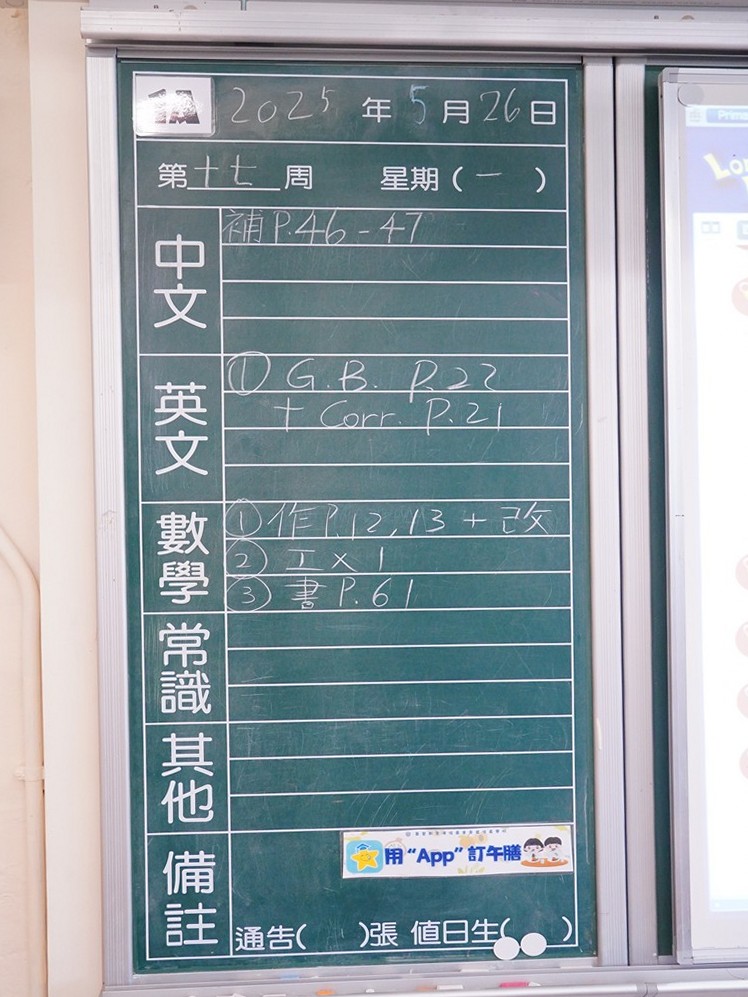 1A 2025年5月26日
第十七周 星期(一)
中文
補 P.46-47
英文
① G.B. P.22
+ Corr. P.21
數學
① 作P.12,13 + 改
② 工 x 1
③ 書 P.61
常識
其他
備註
用“App”訂午膳
通告( )張 值日生( )
Prima
Lo